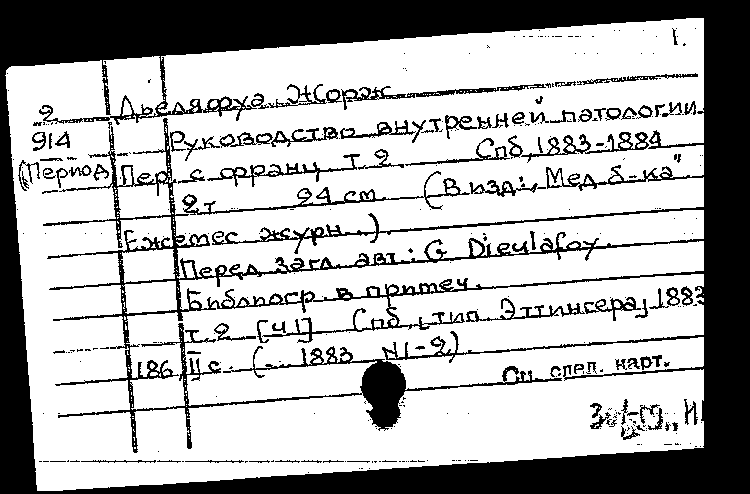 1.
2 Дьелафуа, Жорж
914 Руководство внутренней патологии.
(Период) Пер. с франц. Т. 2. Спб, 1883-1884
2 т 24 см. (В изд: „Мед. б-ка"
Ежемес журн.).
Перед загл. авт.: G Dieulafoy.
Библиогр. в примеч.
т. 2 [ч 1] Спб, тип. Эттингера, 1883
186, II с. (... 1883 N1-2).
См. след. карт.